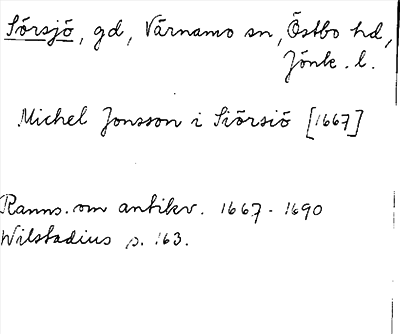 Sörsjö, gd, Värnamo sn, Östbo hd,
Jönk. l.
Michel Jonsson i Siörsiö [1667]
Ranns. om antikv. 1667-1690
Wilstadius s. 163.